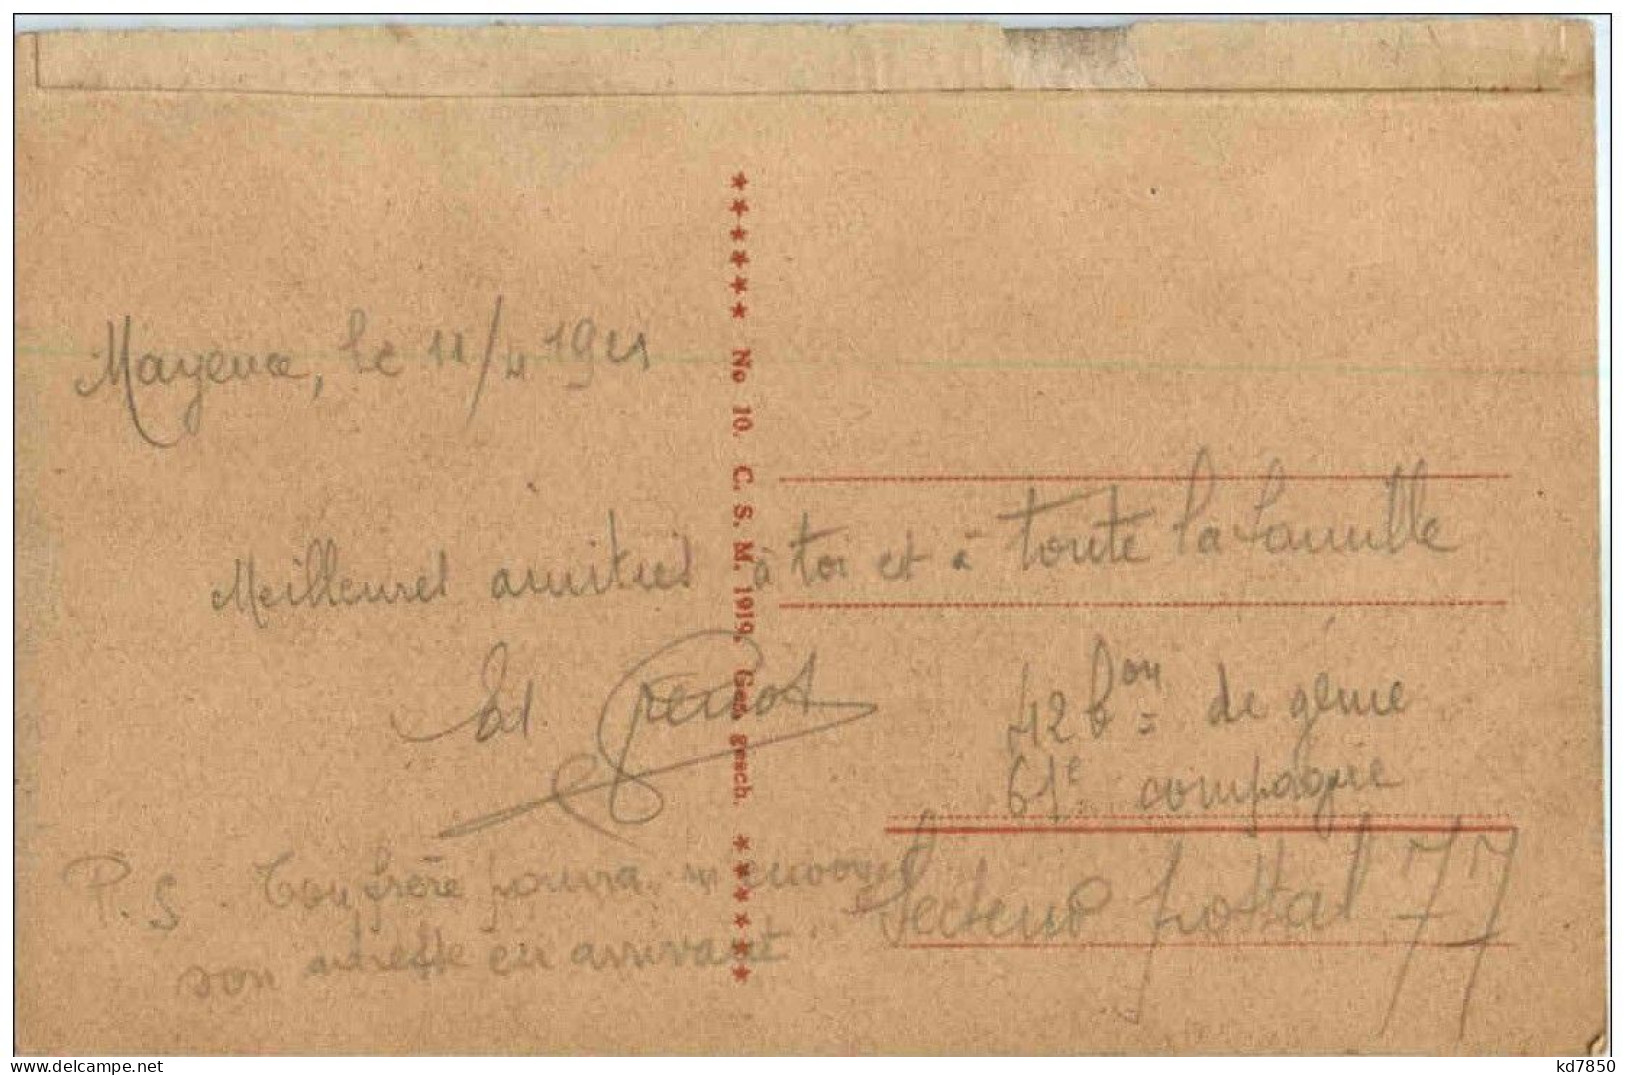 Mayence, le 11/4 1921
Meilleures amitiés à toi et à toute la famille
Ed.
42 bon de génie
61e compagnie
Secteur postal 77
P.S. Ton frère pourra m'envoyer
son adresse en arrivant
★★★★★★ No 10. C. S. M. 1919. Ges. gesch. ★★★★★★
kd7850